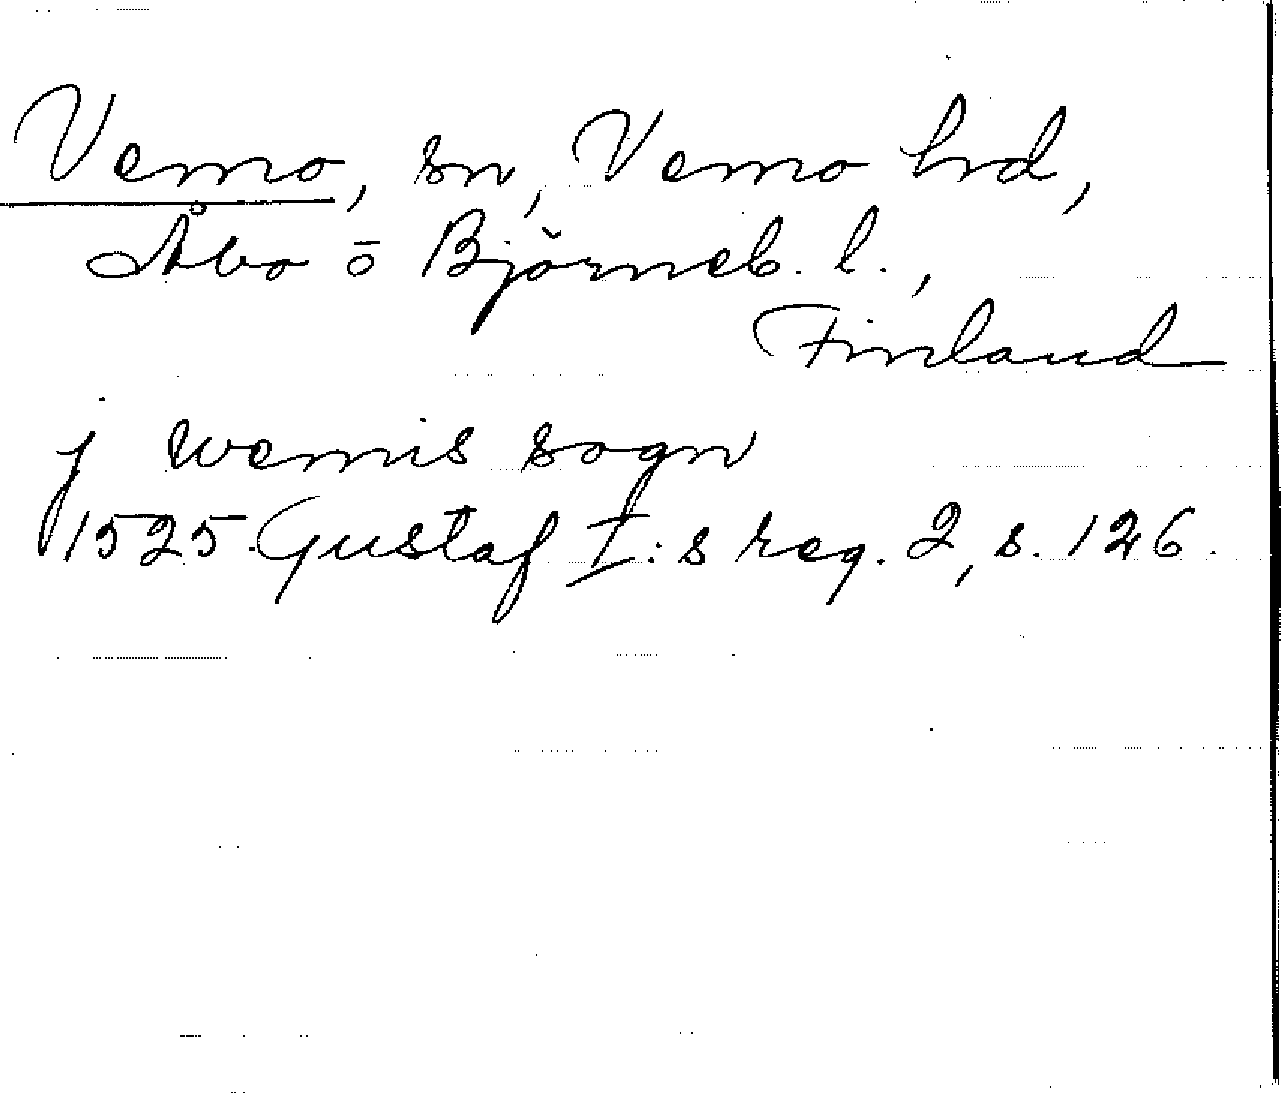 Vemo, sn, Vemo hd,
Åbo ō Björneb. l.,
Finland
j wemis sogn
1525. Gustaf I:s reg. 2, s. 126.